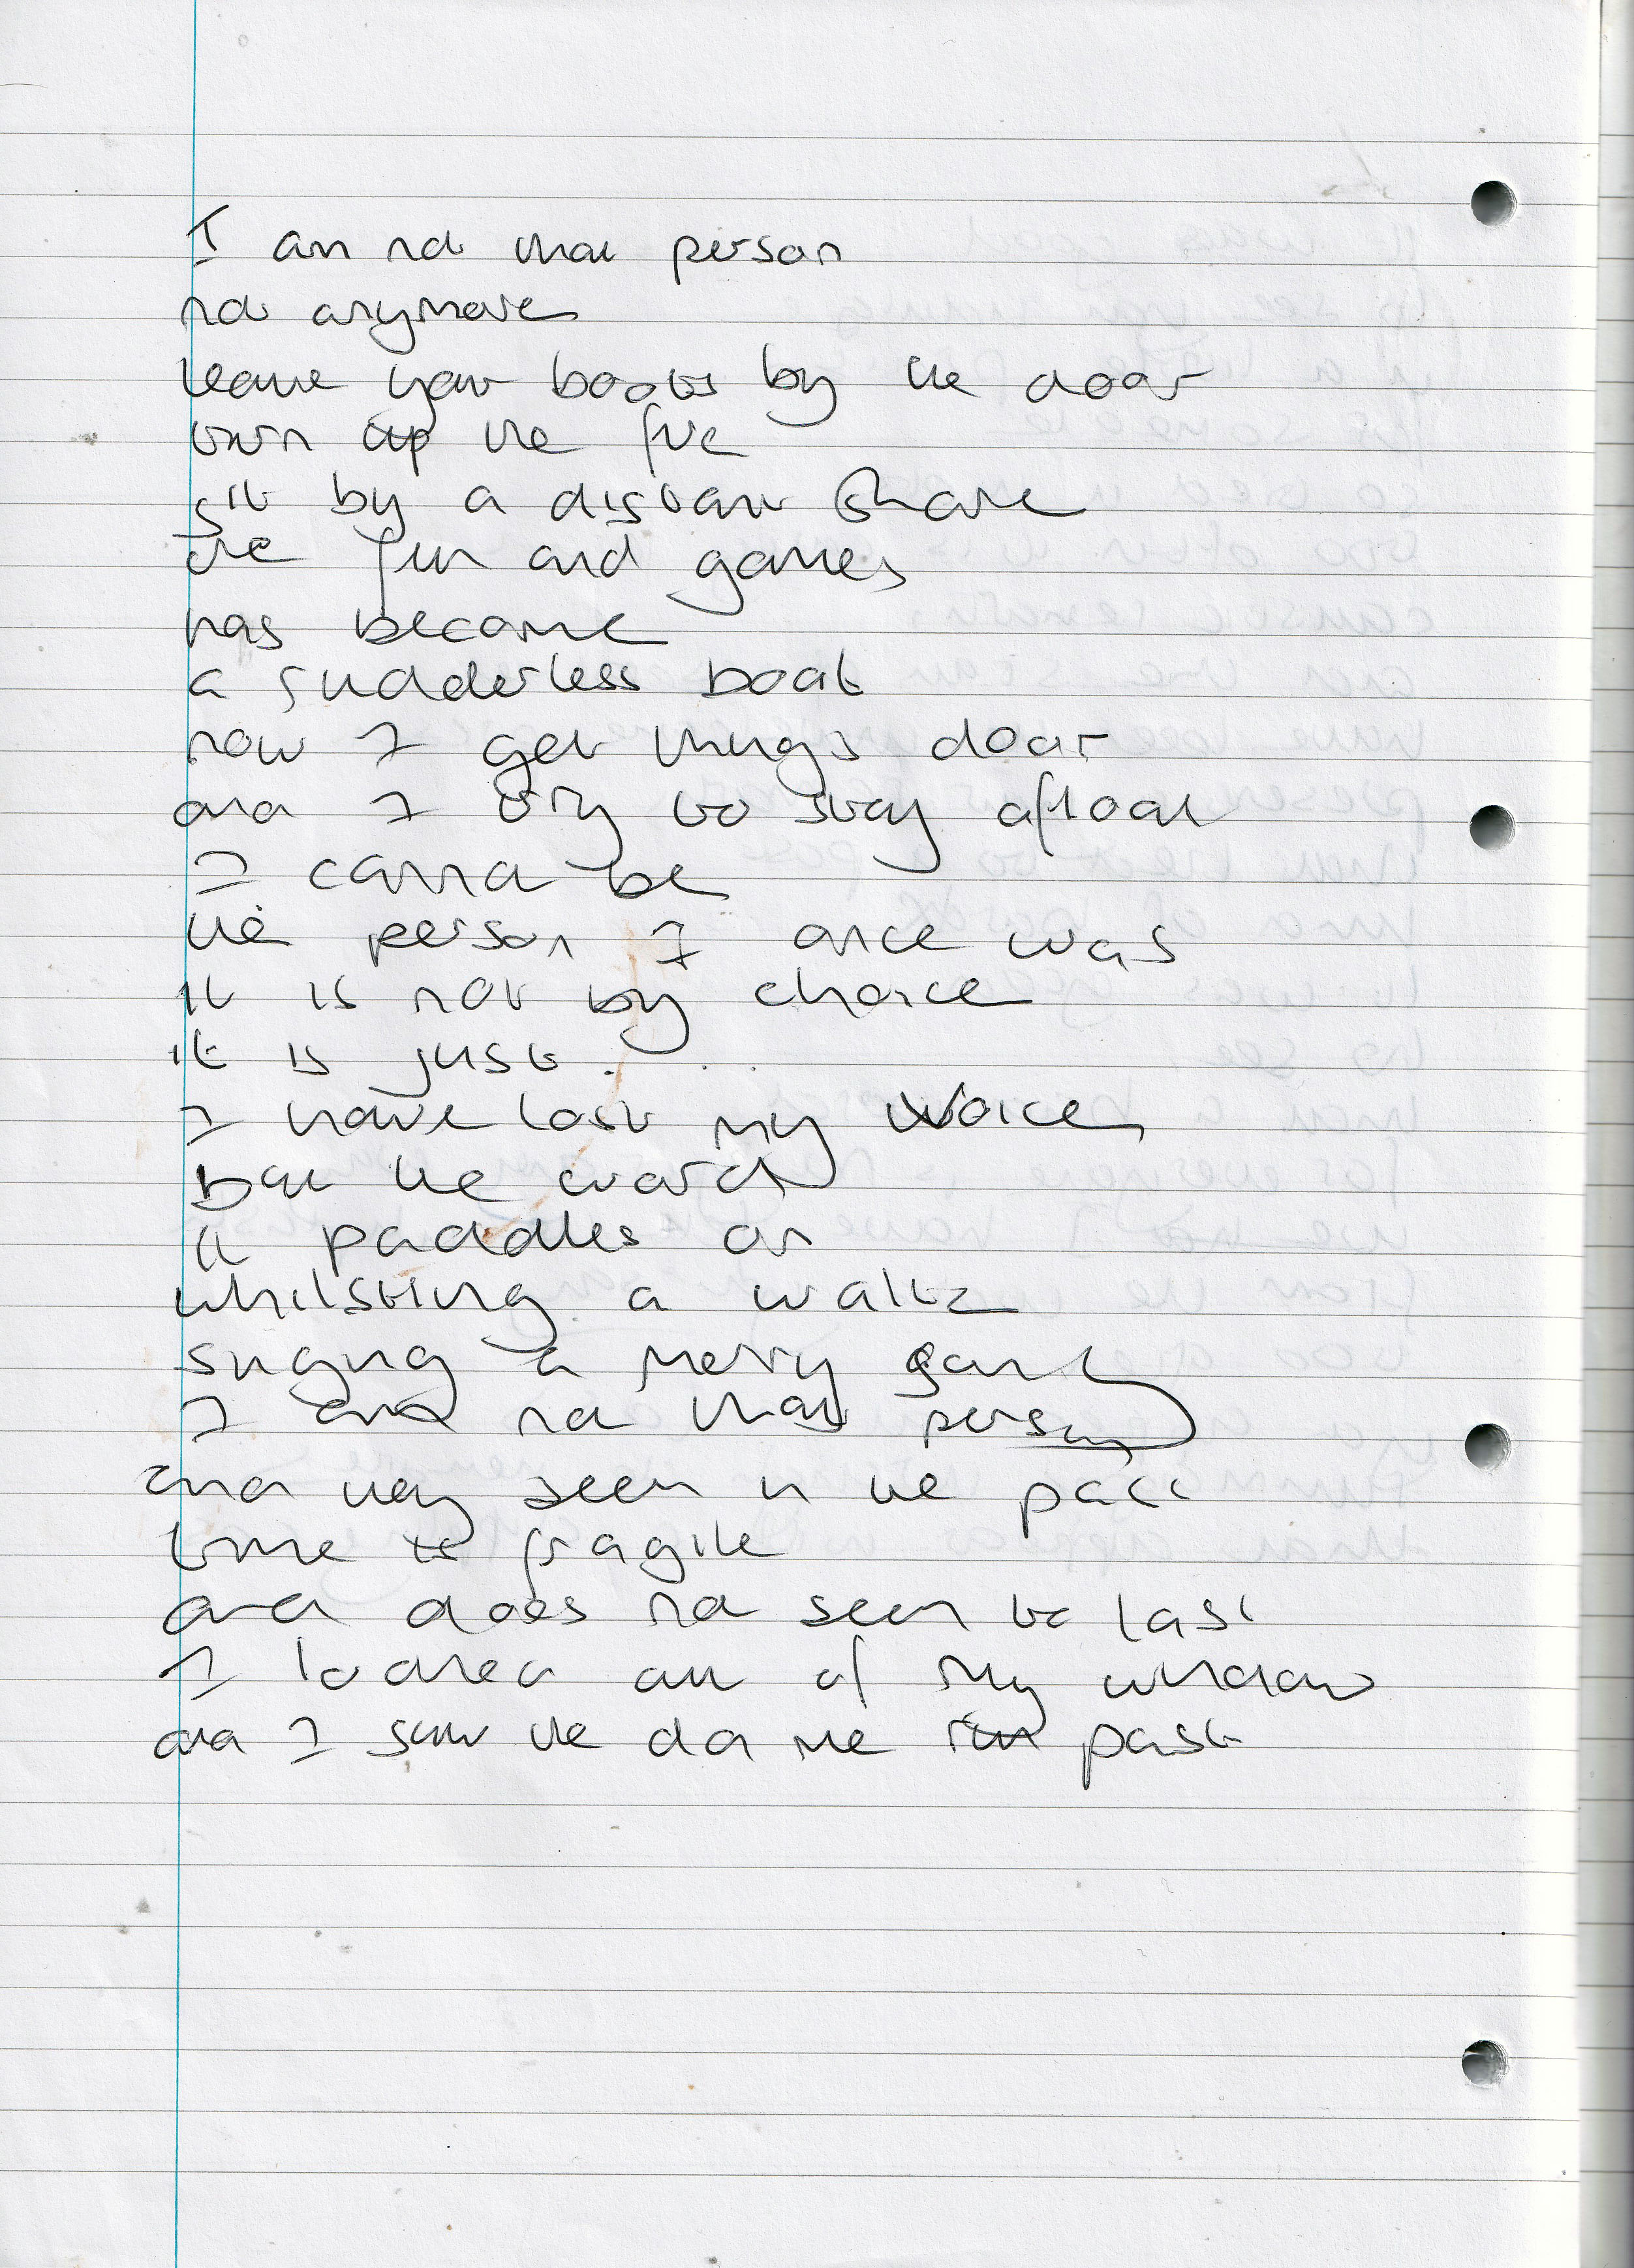 I am not that person
not anymore
leave your boots by the door
turn up the fire
sit by a distant shore
the fun and games
has become
a rudderless boat
now I get things
and I try to stay afloat
I cannot be
the person I once was
it is not by choice
it is just...
I have lost my voice
but the word
it paddles on
whilsting a waltz
singing a merry song
I am not that person
and they seem in the past
time is fragile
and does not seem to last
I looked out of my window
and I saw the do me run past